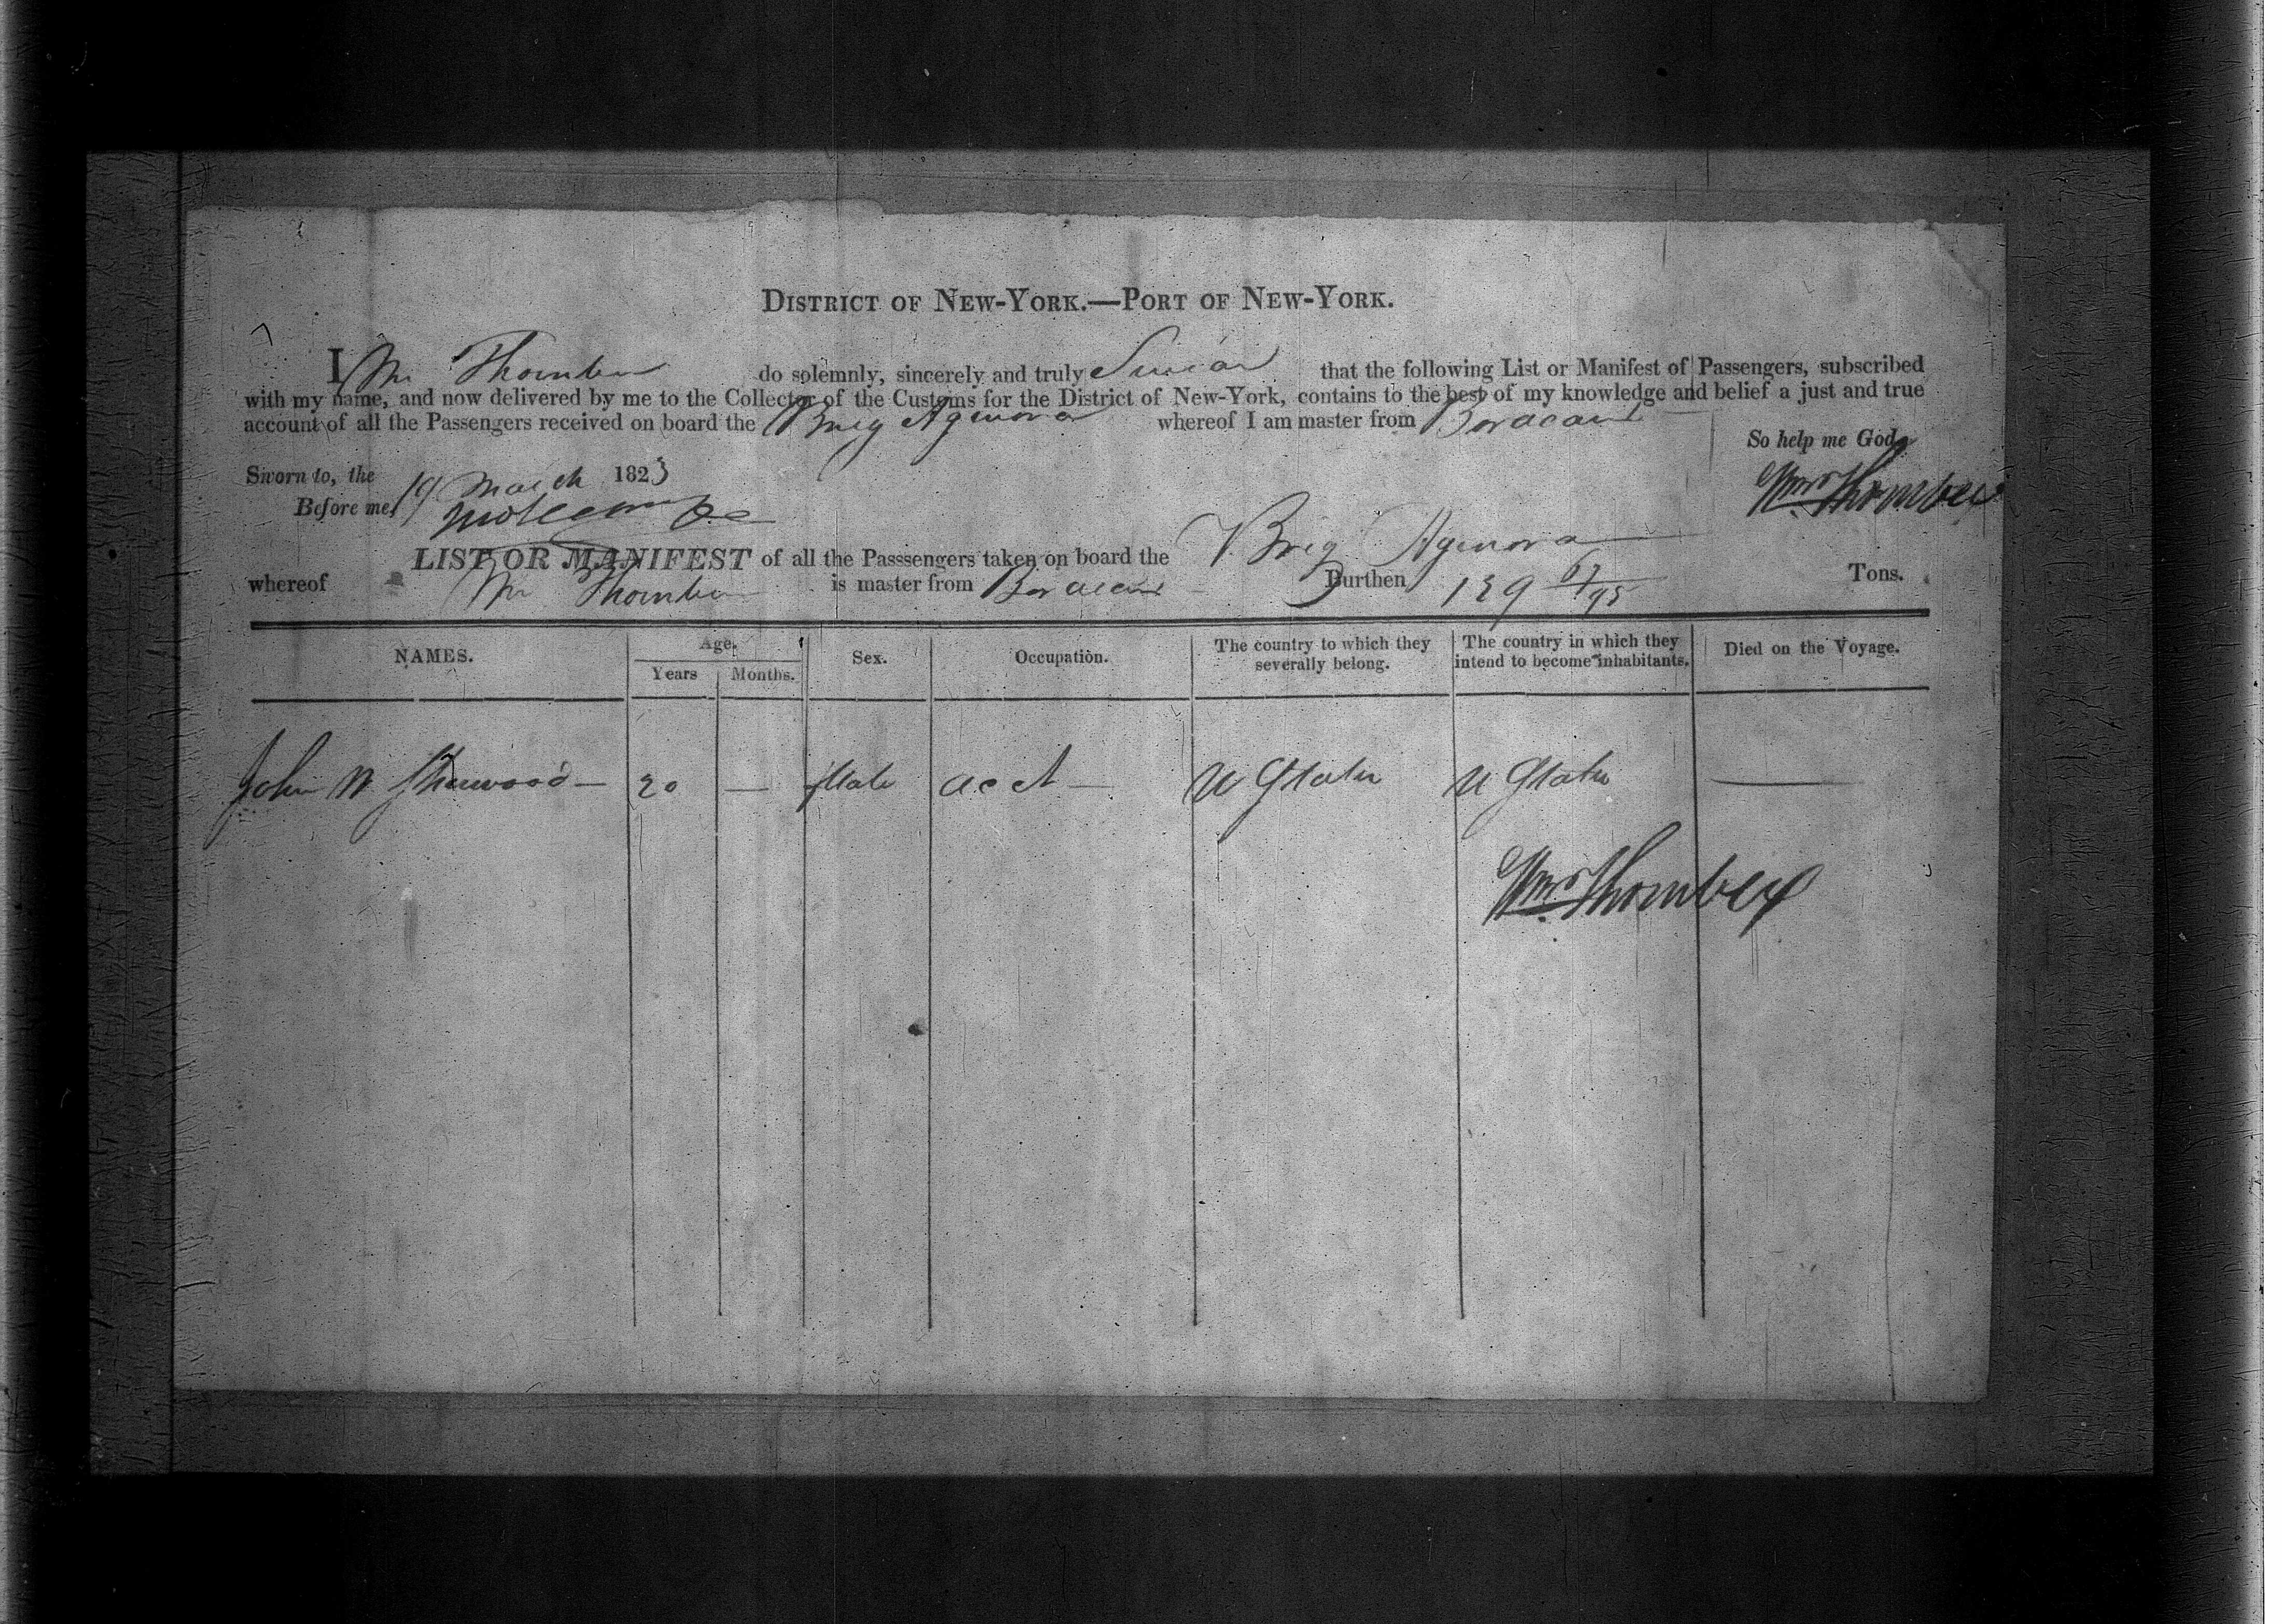 DISTRICT OF NEW-YORK.—PORT OF NEW-YORK.
I Wm Thornber do solemnly, sincerely and truly Swear that the following List or Manifest of Passengers, subscribed
with my name, and now delivered by me to the Collector of the Customs for the District of New-York, contains to the best of my knowledge and belief a just and true
account of all the Passengers received on board the Brig Agenora whereof I am master from
So help me God,
Sworn to, the 19 March 1823
Before me,
Wm. Thornber
LIST OR MANIFEST of all the Passsengers taken on board the Brig Agenora
whereof Wm Thornber is master from Burthen 139 67/95 Tons.
NAMES. Age. Sex. Occupation. The country to which they severally belong. The country in which they intend to become inhabitants. Died on the Voyage.
Years Months.
John W Sherwood — 20 — Male acct — U States U States —
Wm. Thornber